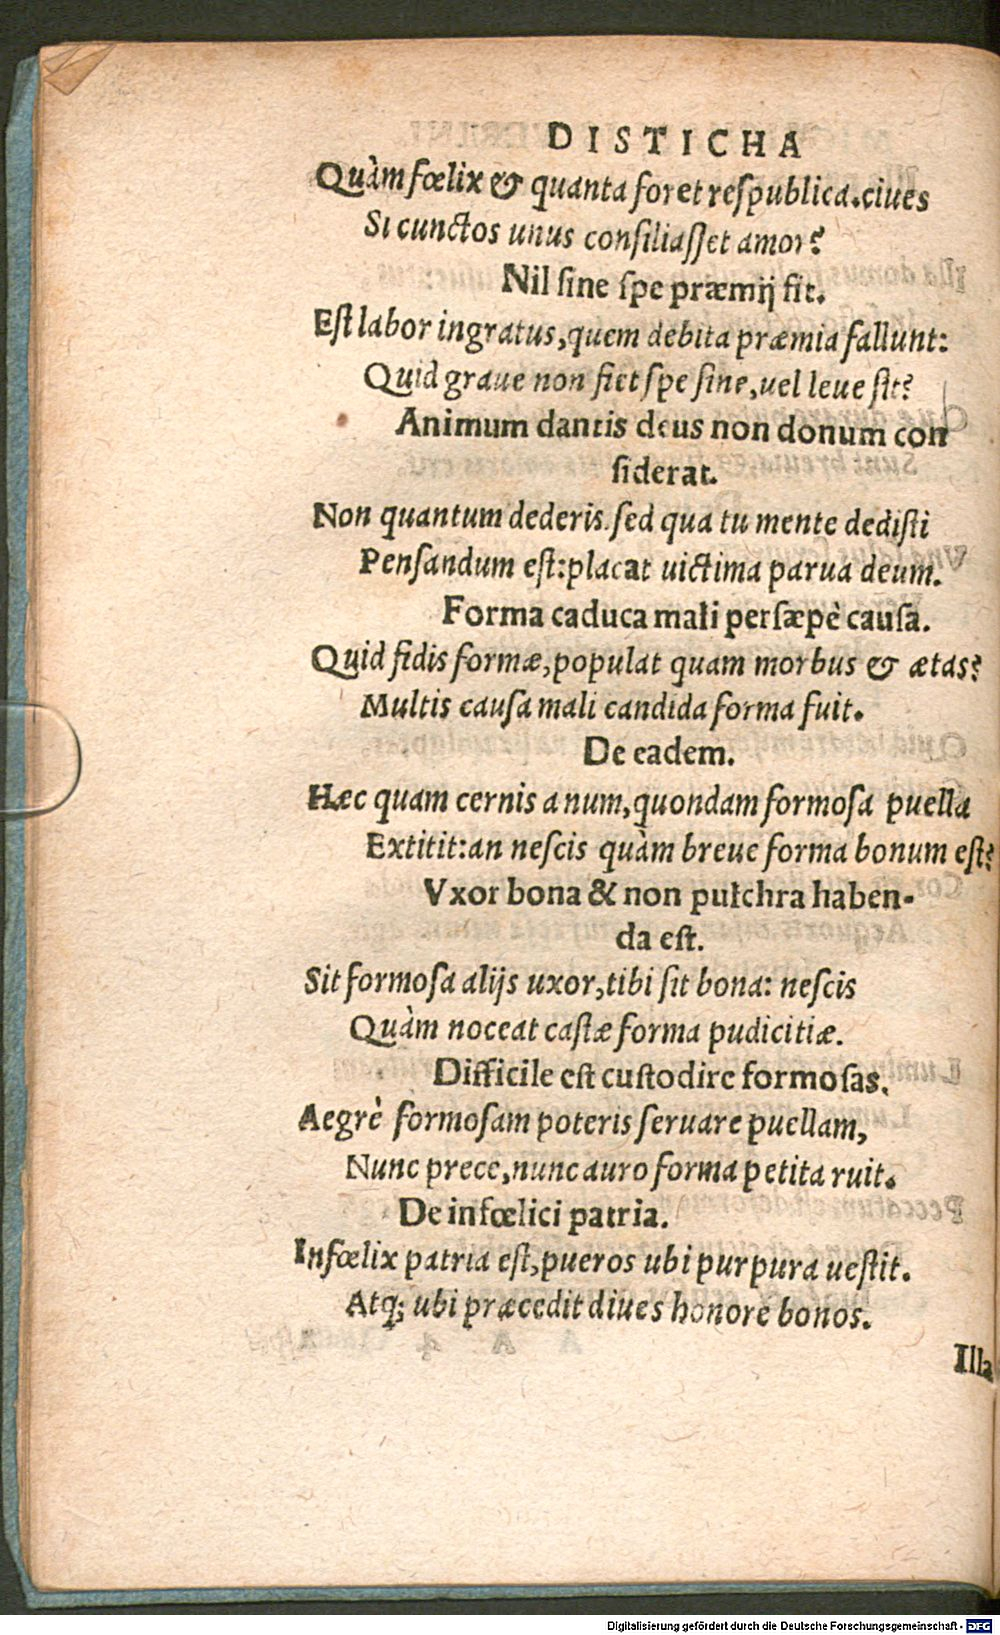 DISTICHA
Quàm fœlix & quanta foret respublica. ciues
Si cunctos unus consiliasset amor?
Nil sine spe præmij fit.
Est labor ingratus, quem debita præmia fallunt:
Quid graue non fiet spe sine, uel leue sit?
Animum dantis deus non donum con
siderat.
Non quantum dederis. sed qua tu mente dedisti
Pensandum est: placat uictima parua deum.
Forma caduca mali persæpè causa.
Quid fidis formæ, populat quam morbus & ætas?
Multis causa mali candida forma fuit.
De eadem.
Hæc quam cernis anum, quondam formosa puella
Extitit: an nescis quàm breue forma bonum est?
Vxor bona & non pulchra haben-
da est.
Sit formosa alijs uxor, tibi sit bona: nescis
Quàm noceat castæ forma pudicitiæ.
Difficile est custodire formosas.
Aegrè formosam poteris seruare puellam,
Nunc prece, nunc auro forma petita ruit.
De infœlici patria.
Infœlix patria est, pueros ubi purpura uestit.
Atq; ubi præcedit diues honore bonos.
Illa
Digitalisierung gefördert durch die Deutsche Forschungsgemeinschaft - DFG